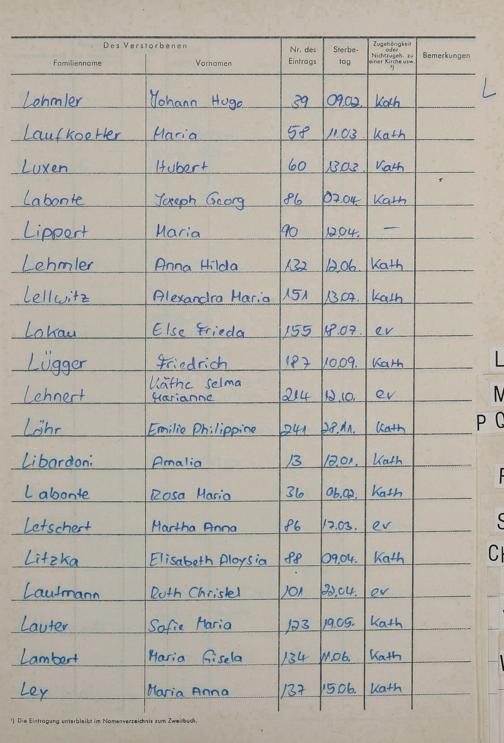 Des Verstorbenen
Familienname Vornamen Nr. des Eintrags Sterbetag Zugehörigkeit oder Nichtzugeh. zu einer Kirche usw. ¹) Bemerkungen
Lehmler Johann Hugo 39 09.02. Kath
L
Laufkoetter Maria 58 11.03 Kath
Luxen Hubert 60 13.03. Kath
Labonte Joseph Georg 86 07.04. Kath
Lippert Maria 90 12.04. —
Lehmler Anna Hilda 132 12.06. Kath
Lellwitz Alexandra Maria 151 13.07. Kath
Lokau Else Frieda 155 18.07. ev
Lügger Friedrich 187 10.09. Kath
Lehnert Käthe Selma Marianne 214 12.10. ev
Löhr Emilie Philippine 241 28.11. Kath
Libardoni Amalia 13 12.01. Kath
Labonte Rosa Maria 36 06.02. Kath
Letschert Martha Anna 86 17.03. ev
Litzka Elisabeth Aloysia 88 09.04. Kath
Laufmann Ruth Christel 101 22.04. ev
Lauter Sofie Maria 123 19.05. Kath
Lambert Maria Gisela 134 11.06. Kath
Ley Maria Anna 137 15.06. Kath
¹) Die Eintragung unterbleibt im Namenverzeichnis zum Zweitbuch.